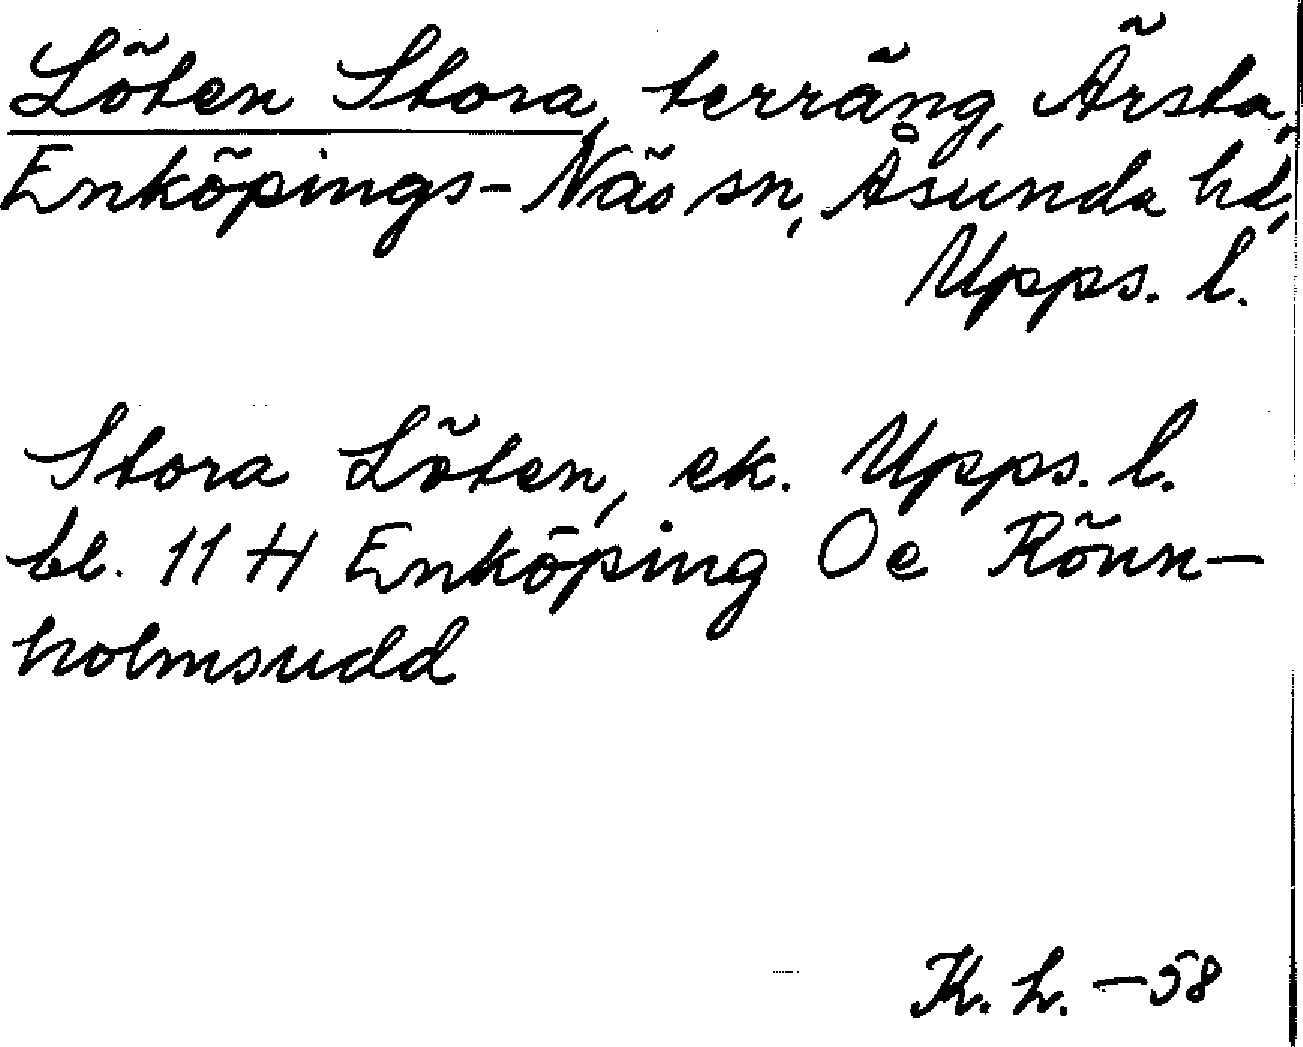 Löten Stora, terräng, Ärsta,
Enköpings-Näs sn, Åsunda hd,
Upps. l.
Stora Löten, ek. Upps. l.
bl. 11 H Enköping Oe Rönn-
holmsudd
K. h. -58